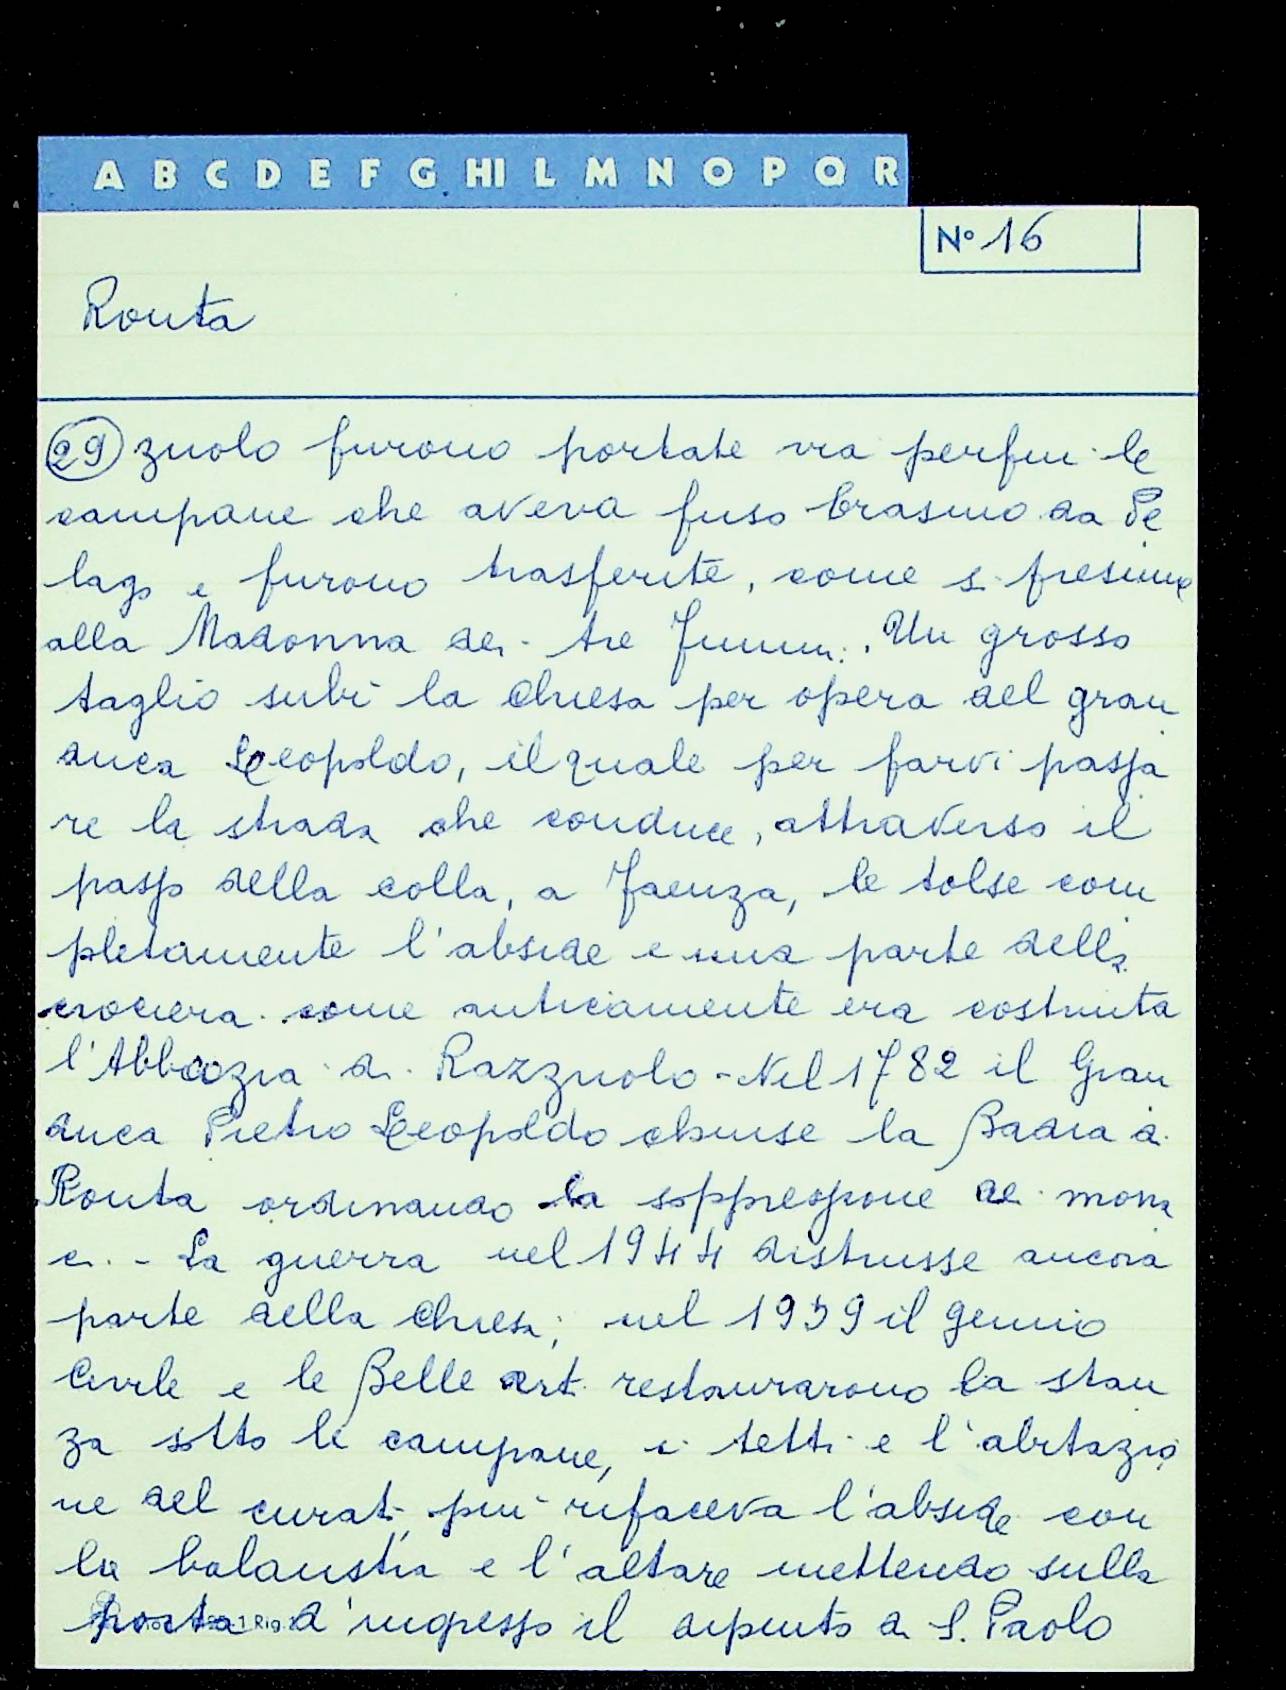 A B C D E F G HI L M N O P Q R
N° 16
Ronta
29 zuolo furono portate via perfin le
campane che aveva fuso Erasmo da Pe
lago e furono trasferite, come si presume
alla Madonna dei tre Fiumi. Un grosso
taglio subì la Chiesa per opera del gran
duca Leopoldo, il quale per farvi passa
re la strada che conduce, attraverso il
passo della colla, a Faenza, le tolse com
pletamente l'abside e una parte della
crociera come anticamente era costruita
l'Abbazia di Razzuolo - Nel 1782 il Gran
duca Pietro Leopoldo chiuse la Badia di
Ronta ordinando la soppressione dei mona
ci. - La guerra nel 1944 distrusse ancora
parte della Chiesa; nel 1959 il genio
Civile e le Belle arti restaurarono la stan
za sotto le campane, i tetti e l'abitazio
ne del curato, più rifaceva l'abside con
la balaustra e l'altare mettendo sulla
porta d'ingresso il dipinto di S. Paolo